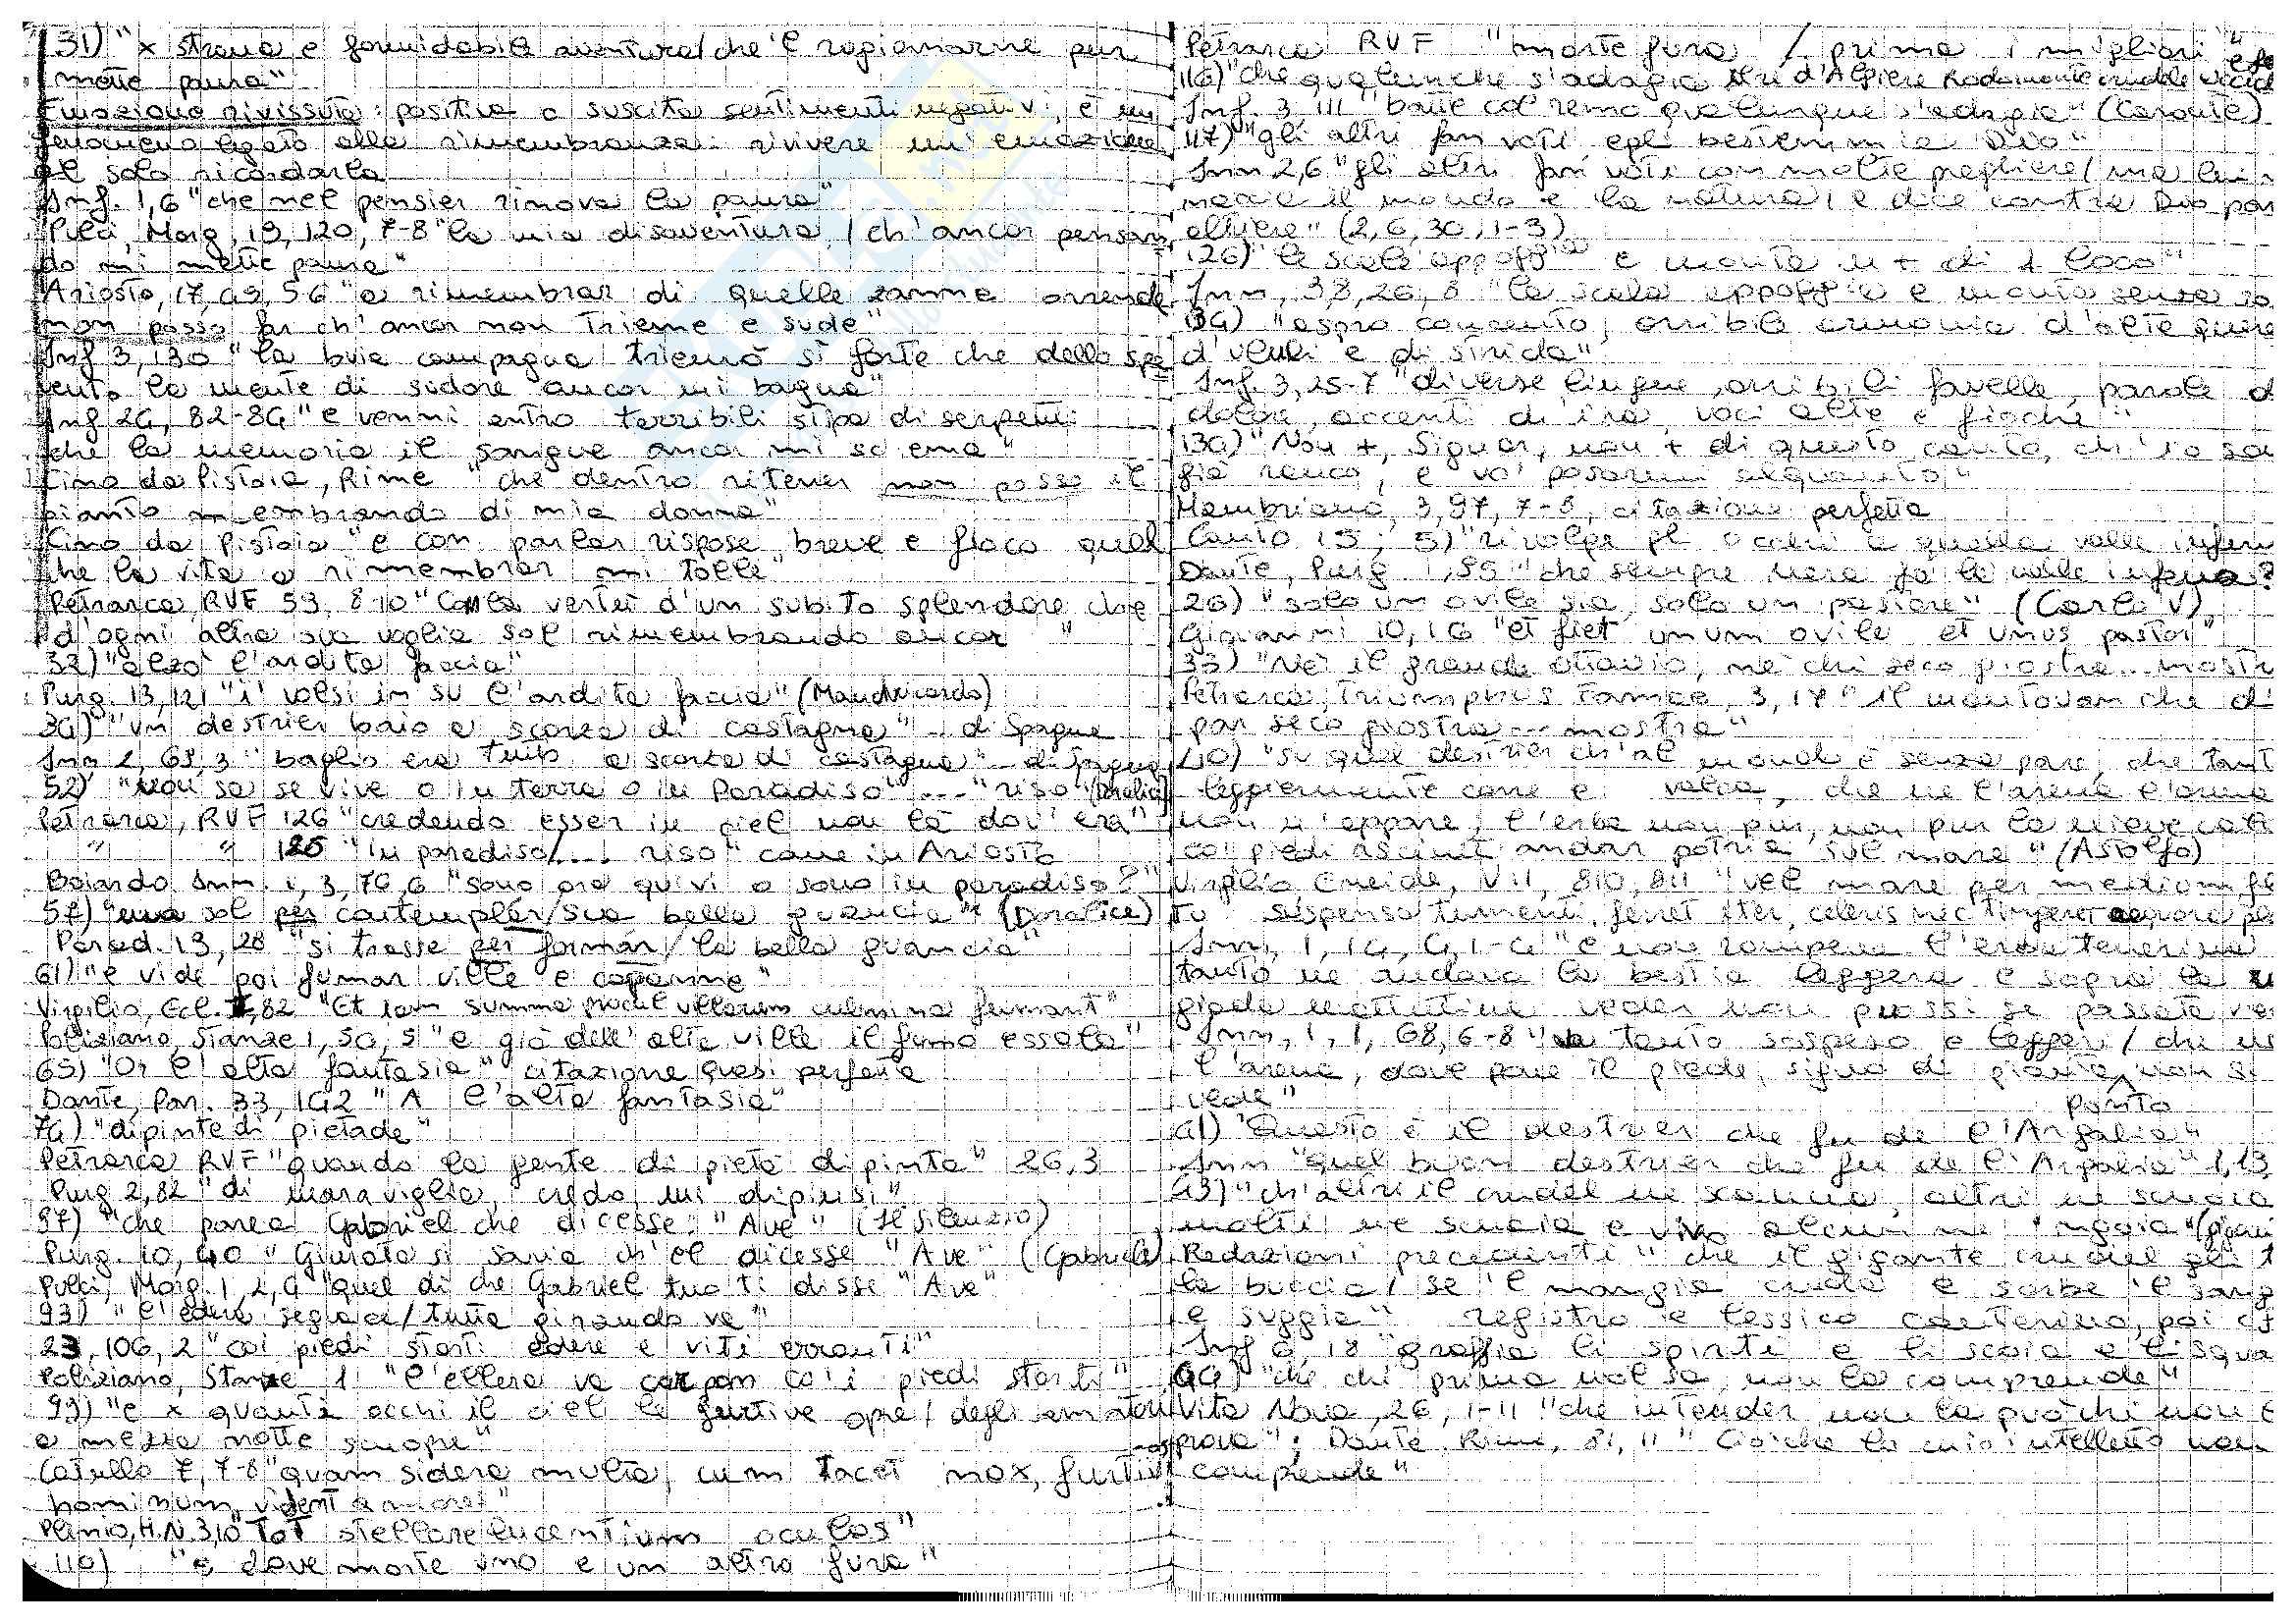 31) "x strana e formidabil aventura/che 'l ragionarne pur
mette paura"
Emozione rivissuta: positiva o suscita sentimenti negativi, è un
fenomeno legato alla rimembranza: rivivere un'emozione
al solo ricordarla
Inf. 1,6 "che nel pensier rinova la paura"
Pulci, Morg, 19, 120, 7-8 "la mia disaventura, / ch'ancor pensan
do mi mette paura"
Ariosto, 17, 49, 56 "a rimembrar di quelle zanne orrende
non posso far ch'ancor non trieme e sude"
Inf 3, 130 "la buia campagna tremò sì forte che dello spa
vento la mente di sudore ancor mi bagna"
Inf 24, 82-84 "e venni entro terribili stipa di serpenti
che la memoria il sangue ancor mi scema"
Cino da Pistoia, Rime "che dentro ritener non posso il
pianto rimembrando di mia donna"
Cino da Pistoia "e con parlar rispose breve e fioco quel
che la vita a rimembrar mi tolle"
Petrarca, RVF 53, 8-10 "vertù d'un subito splendore che
d'ogni altra sua voglia sol rimembrando ancor "
32) "alzò l'ardita faccia"
Purg. 13, 121 "i' volsi in su l'ardita faccia" (Mandricardo)
34) "un destrier baio a scorza di castagna" ... di Spagna
Inn 2, 69, 3 "baglio era tutto a scorza di castagna"
52) "Non sa se vive o in terra o in Paradiso" ... "riso" (Doralice)
Petrarca, RVF 126 "credendo esser in ciel non là dov'era"
" " 126 "in paradiso/.... riso" come in Ariosto
Boiardo Inn. 1, 3, 74, 6 "sono ora quivi o sono in paradiso?"
57) "una sol per contemplar/sua bella guancia" (Doralice)
Parad. 13, 28 "si trasse per formar/la bella guancia"
61) "e vide poi fumar ville e capanne"
Virgilio, Ecl. I, 82 "Et iam summa procul villarum culmina fumant"
Poliziano, Stanze 1, 50, 5 "e già dell'alte ville il fumo essala"
65) "Or l'alta fantasia" citazione quasi perfetta
Dante, Par. 33, 142 "A l'alta fantasia"
74) "dipinte di pietade"
Petrarca RVF "quando la gente di pietà dipinta" 26,3
Purg 2,82 "di maraviglia, credo, mi dipinsi"
97) "che parea Gabriel che dicesse: "Ave" (Il Silenzio)
Purg. 10, 40 "Giurato si saria ch'el dicesse "Ave" (Gabriele)
Pulci, Morg. 1, 2, 4 "quel dì che Gabriel tuo ti disse "Ave"
93) "l'edera seguace/tutta girando va"
23, 106, 2 "coi piedi storti edere e viti erranti"
Poliziano, Stanze 1 "l'ellera va carpon co' i piedi storti"
99) "e x quanti occhi il ciel le furtive opre/degli amatori
a mezza notte scuopre"
Catullo 7, 7-8 "quam sidera multa, cum tacet nox, furtivos
hominum vident amores"
Plinio, H.N. 3,10 "Tot stellarum lucentium oculos"
110) "e dove morte uno e un altro fura"
Petrarca RVF "morte fura / prima i migliori"
116) "che qualunche s'adagia il re d'Algiere Rodomonte crudele uccid
Inf. 3, 111 "batte col remo qualunque s'adagia" (Caronte)
117) "gli altri fan voti egli bestemmia Dio"
Inn 2,6 "gli altri fan voti con molte preghiere/ma lui
il mondo e la natura/e dice contra Dio par
altiere" (2,6,30,1-3)
126) "le scale appoggia e monta in + di 1 loco"
Inn, 38, 26, 8 "la scala appoggia e monta senza
134) "aspro concento, orribile armonia d'alte quere
d'ululi e di strida"
Inf. 3, 25-7 "diverse lingue, orribili favelle, parole d
dolore, accenti di ira, voci alte e fioche"
134) "Non +, Signor, non + di questo canto, ch'io son
già rauco, e vo' posarmi alquanto"
Mambriano, 3, 97, 7-8, citazione perfetta
Canto 15; 5) "rivolge gli occhi a quella valle inferna
Dante, Purg 1, 45 "che sempre nera fa la valle inferna?
26) "solo un ovile sia, solo un pastore" (Carlo V)
Giovanni 10, 16 "et fiet unum ovile et unus pastor"
33) "Né il grande Ottavio, né chi seco giostra... mostra
Petrarca, Triumphus Famae, 3, 17 "il mantovan che di
par seco giostra ... mostra"
40) "Su quel destrier ch'al mondo è senza pare, che tant
leggiermente corre e valca, che ne l'arena l'orma
non n'appare, l'erba non pur, non pur la nieve calca
co' piedi asciutt andar potria sul mare" (Astolfo)
Virgilio Eneide, VII, 810, 811 "vel mare per medium fl
tu suspensa tumenti, ferret iter, celeris nec tingeret aequore pl
Inn, 1, 14, 4, 1-4 "e non rompeva l'erba tenerina
tanto ne andava la bestia leggera e sopra la
giada mattutina veder non puossi se passata v'er
Inn, 1, 1, 68, 6-8 "va tanto sospeso e legger/che in
l'arena, dove pone il piede, signo di pianta non si
ponto
vede"
41) "Questo è il destrier che fu de l'Argalia"
Inn "quel buon destrier che fu de l'Argalia" 1,13
43) "ch'altri il crudel ne scanna, altri ne scuoia
molti ne scuoia e vivo alcun ne 'ngoia"
Redazioni precedenti "che il gigante crudel gli t
la buccia/se 'l mangia crudo e sorbe 'l sang
e suggia" registro e lessico canterino, poi
Inf 6, 18 "graffia li spirti e li scoia e li squa
44) "che chi prima nol sa, non la comprende"
Vita Nova, 26, 1-11 "che intender non la può chi non
prova"; Dante Rime, 81, 11 "Ciò che lo mio intelletto non
comprende"